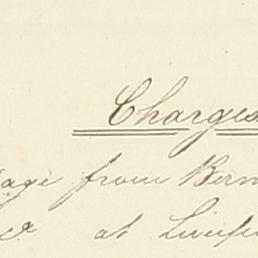 Charges
age from Bern
ca at Liverpo